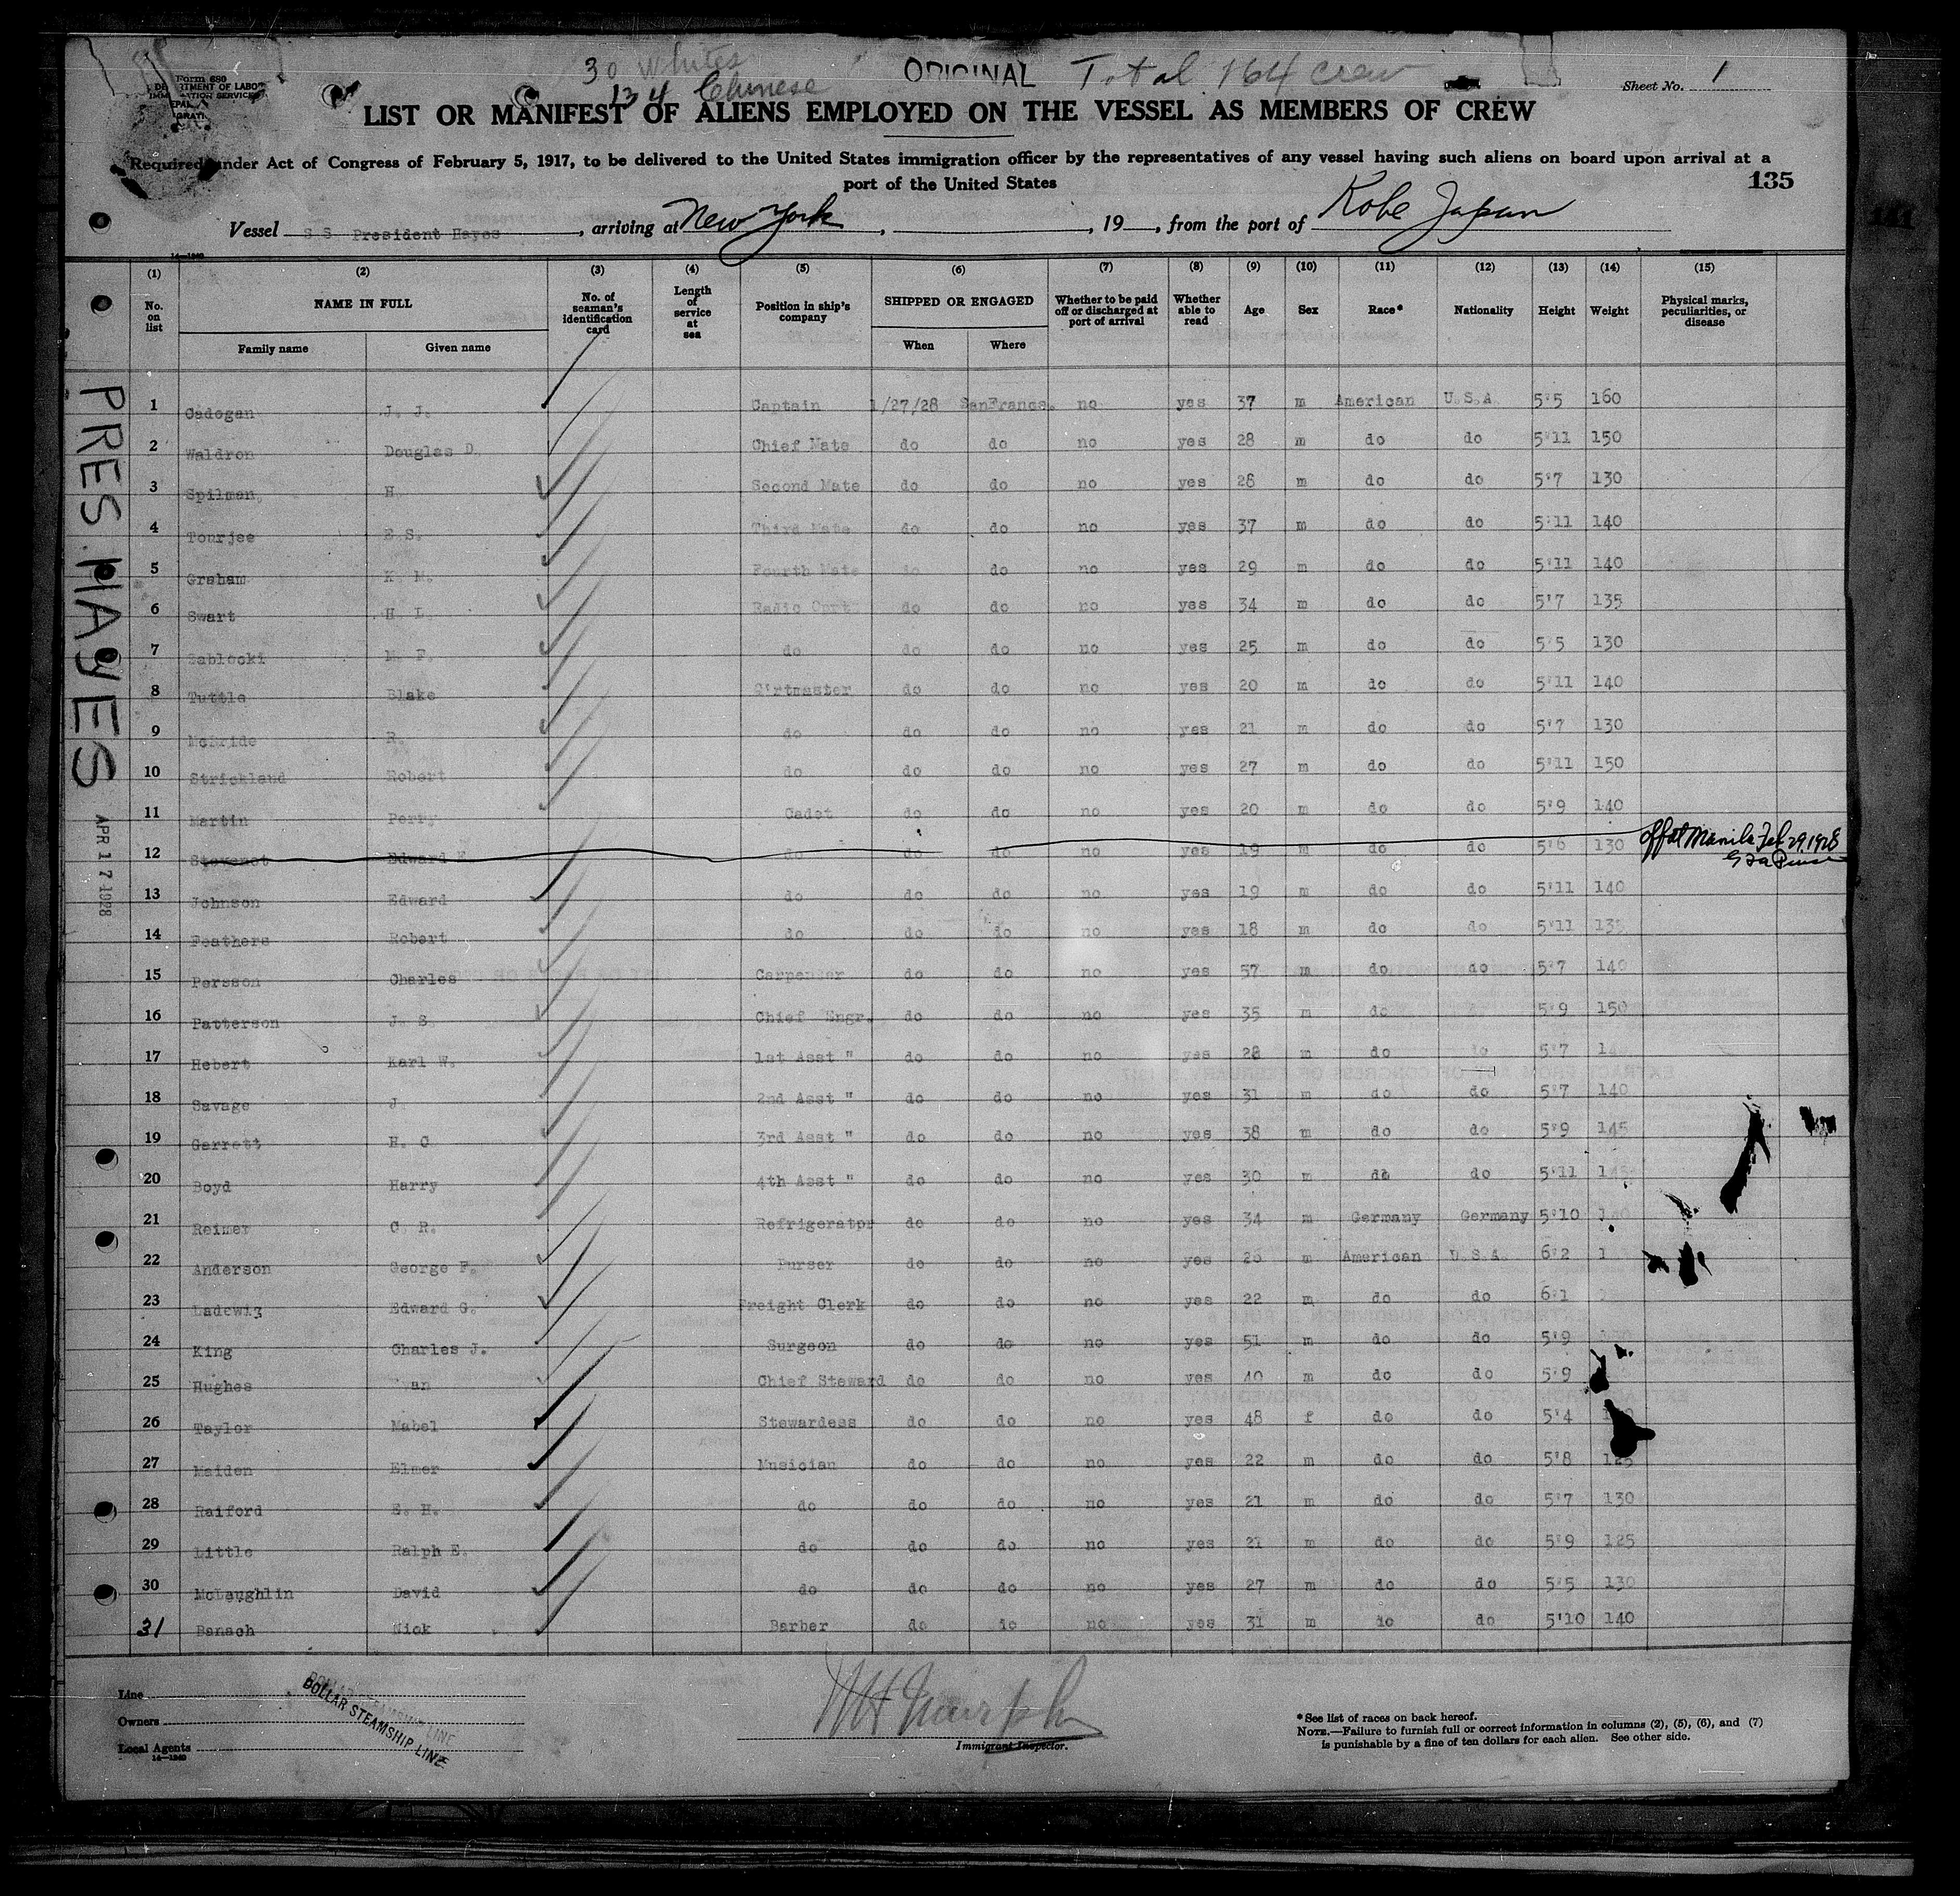 30 Whites
134 Chinese
ORIGINAL Total 164 crew
Form 680
Sheet No. 1
LIST OR MANIFEST OF ALIENS EMPLOYED ON THE VESSEL AS MEMBERS OF CREW
Required under Act of Congress of February 5, 1917, to be delivered to the United States immigration officer by the representatives of any vessel having such aliens on board upon arrival at a
port of the United States
135
Vessel S S President Hayes, arriving at New York, , 19 , from the port of Kobe Japan
(1) (2) (3) (4) (5) (6) (7) (8) (9) (10) (11) (12) (13) (14) (15)
No. on list NAME IN FULL No. of seaman's identification card Length of service at sea Position in ship's company SHIPPED OR ENGAGED Whether to be paid off or discharged at port of arrival Whether able to read Age Sex Race* Nationality Height Weight Physical marks, peculiarities, or disease
Family name Given name When Where
1 Cadogan J. J. Captain 1/27/28 SanFrancs. no yes 37 m American U.S.A 5'5 160
2 Waldron Douglas D. Chief Mate do do no yes 28 m do do 5'11 150
3 Spilman, H Second Mate do do no yes 28 m do do 5'7 130
4 Tourjee E S. Third Mate do do no yes 37 m do do 5'11 140
5 Graham K. M. Fourth Mate do do no yes 29 m do do 5'11 140
6 Swart H L Radio do do no yes 34 m do do 5'7 135
7 Sablocki M. F. do do do no yes 25 m do do 5'5 130
8 Tuttle Blake Q'rtmaster do do no yes 20 m do do 5'11 140
9 McBride R. do do do no yes 21 m do do 5'7 130
10 Strickland Robert do do do no yes 27 m do do 5'11 150
11 Martin Perry Cadet do do no yes 20 m do do 5'9 140
12 Edward do do do no yes 19 m do do 5'6 130 off at Manila Feb 29, 1928
13 Johnson Edward do do do no yes 19 m do do 5'11 140
14 Feathers Robert do do do no yes 18 m do do 5'11 135
15 Persson Charles Carpenter do do no yes 57 m do do 5'7 140
16 Patterson J. S. Chief Engr. do do no yes 35 m do 5'9 150
17 Hebert Karl W. 1st Asst " do do no yes 28 m do do 5'7
18 Savage J. 2nd Asst " do do no yes 31 m do do 5'7 140
19 Garrett H. C 3rd Asst " do do no yes 38 m do do 5'9 145
20 Boyd Harry 4th Asst " do do no yes 30 m do do 5'11
21 Reimer C. R. Refrigerator do do no yes 34 m Germany Germany 5'10
22 Anderson George F. Purser do do no yes 26 m American U.S.A. 6'2
23 Ladewig Edward G. Freight Clerk do do no yes 22 m do do 6'1
24 King Charles J. Surgeon do do no yes 51 m do do 5'9
25 Hughes Chief Steward do do no yes 40 m do do 5'9
26 Taylor Mabel Stewardess do do no yes 48 f do do 5'4
27 Maiden Elmer Musician do do no yes 22 m do do 5'8 125
28 Raiford E. H. do do do no yes 21 m do do 5'7 130
29 Little Ralph E. do do do no yes 21 m do do 5'9 125
30 McLaughlin David do do do no yes 27 m do do 5'5 130
31 Banach Nick Barber do do no yes 31 m do do 5'10 140
PRES. HAYES
APR 17 1928
Line
Owners
Local Agents
DOLLAR STEAMSHIP LINE
Immigrant Inspector.
*See list of races on back hereof.
NOTE.—Failure to furnish full or correct information in columns (2), (5), (6), and (7)
is punishable by a fine of ten dollars for each alien. See other side.